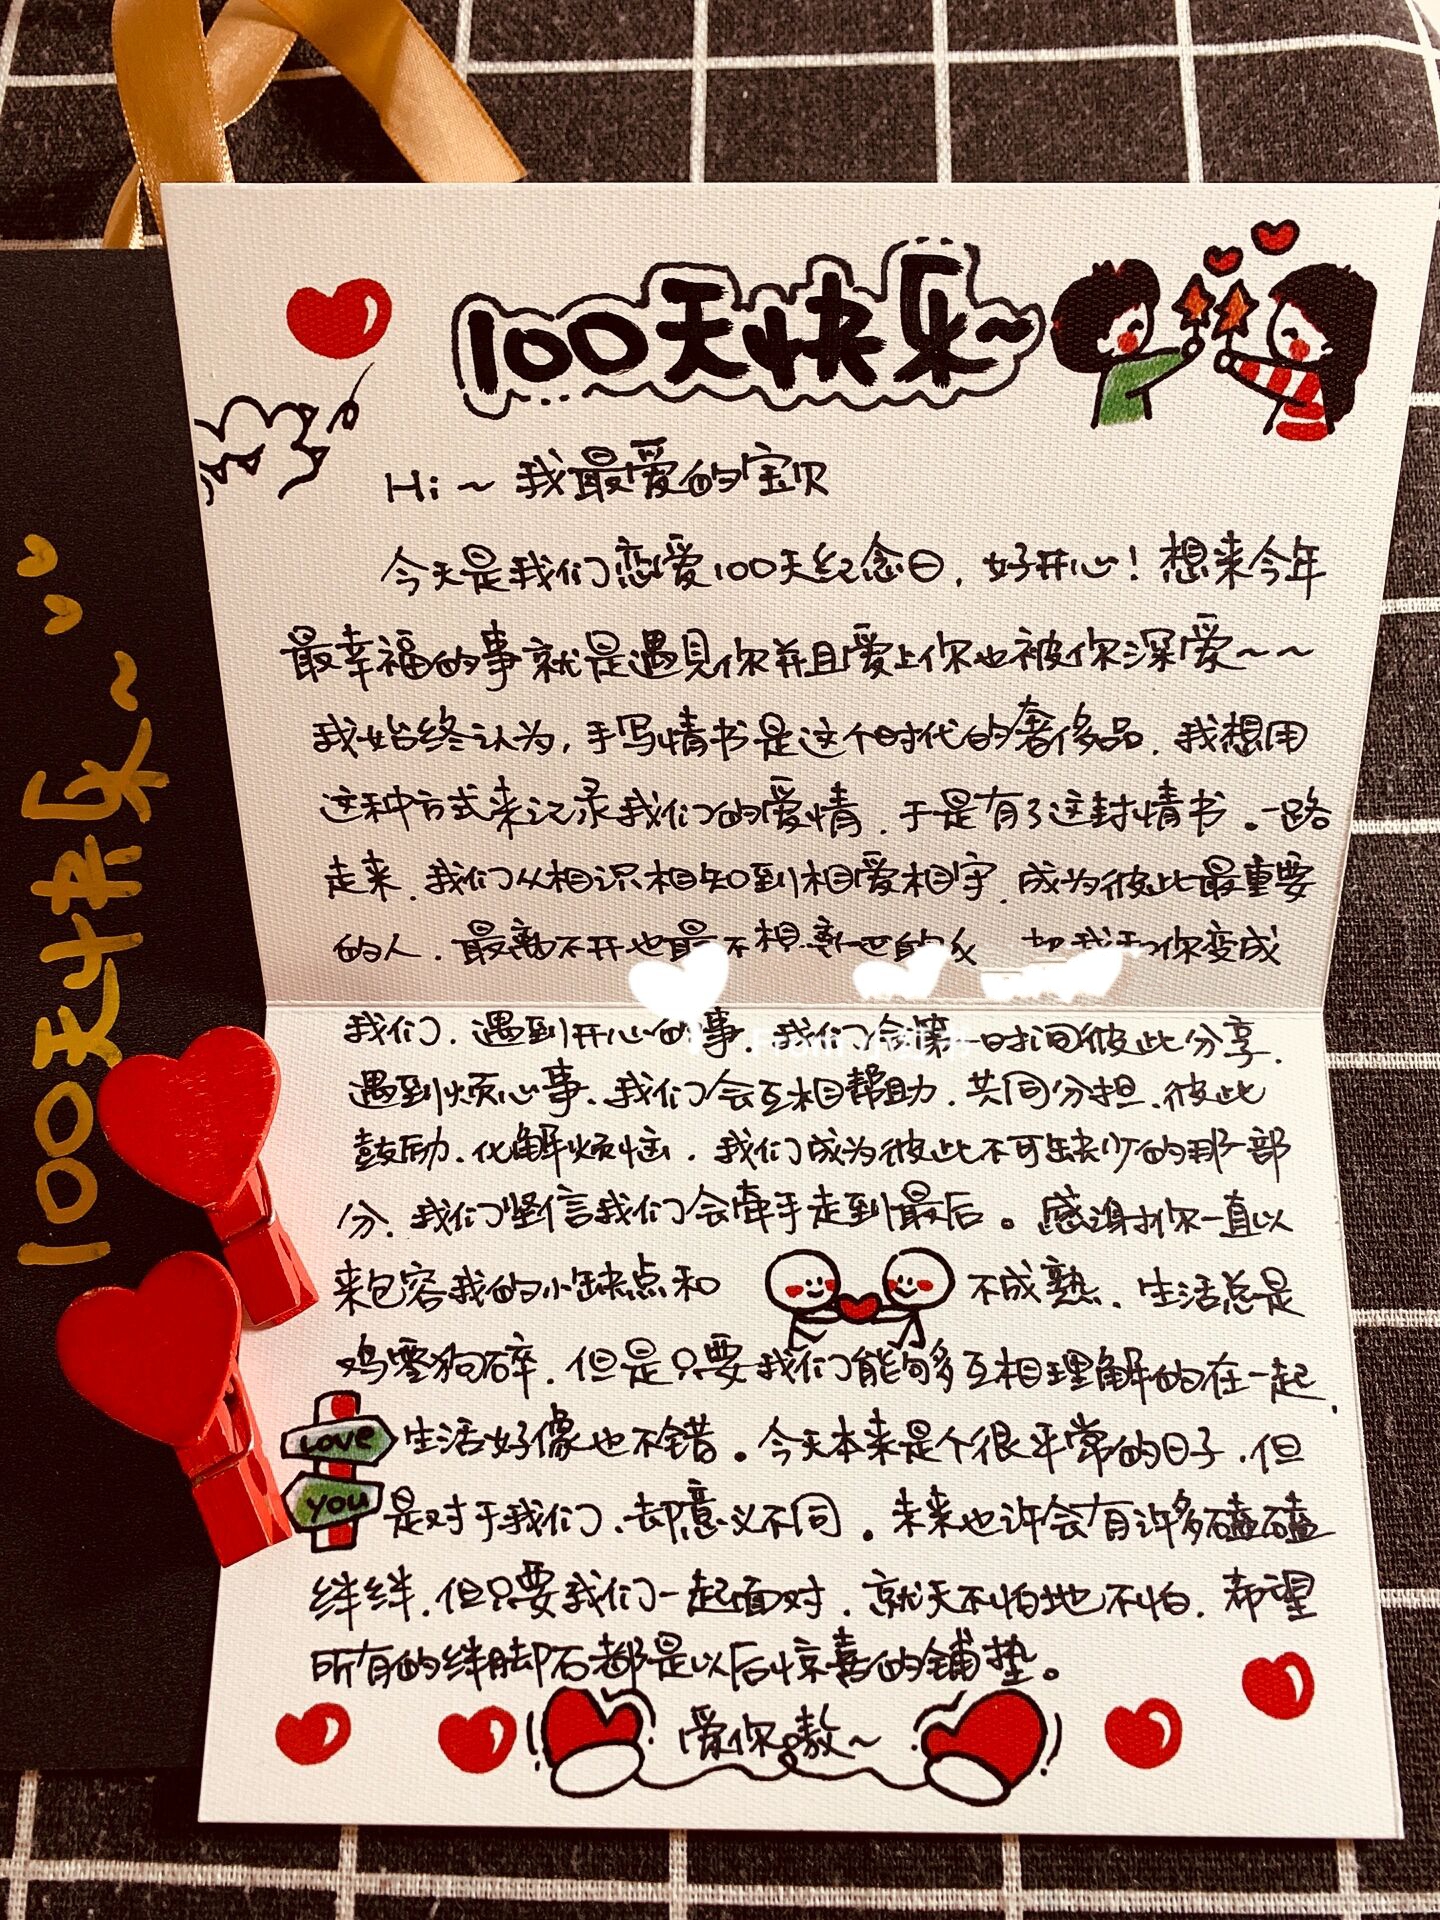 100天快乐~
100天快乐~
Hi~ 我最爱的宝贝
今天是我们恋爱100天纪念日,好开心!想来今年
最幸福的事就是遇见你并且爱上你也被你深爱~~
我始终认为,手写情书是这个时代的奢侈品,我想用
这种方式来记录我们的爱情,于是有了这封情书。一路
走来,我们从相识相知到相爱相守,成为彼此最重要
的人,最离不开也最不想 的 我和你变成
我们,遇到开心的事,我们会第一时间彼此分享,
遇到烦心事,我们会互相帮助,共同分担,彼此
鼓励,化解烦恼,我们成为彼此不可缺少的那一部
分,我们坚信我们会牵手走到最后。感谢你一直以
来包容我的小缺点和不成熟,生活总是
鸡零狗碎,但是只要我们能够互相理解的在一起,
Love 生活好像也不错。今天本来是个很平常的日子,但
you 是对于我们,却意义不同。未来也许会有许多磕磕
绊绊,但只要我们一起面对,就天不怕地不怕,希望
所有的绊脚石都是以后惊喜的铺垫。
爱你嗷~
From 小红书